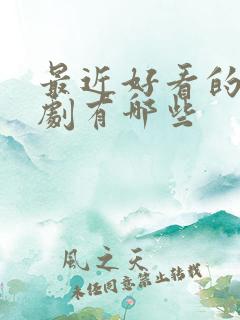 最近好看的
劇有哪些
風之天
未经同意禁止转载